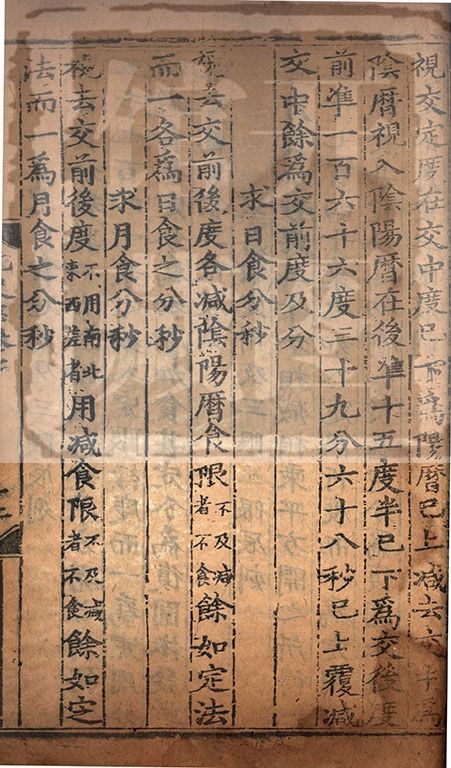 視交定度在交中度已下爲陽曆已上减去交中爲
陰曆視入陰陽曆在後準十五度半已下爲交後度
前準一百六十六度三十九分六十八秒已上覆减
交中餘爲交前度及分
求日食分秒
視去交前後度各减陰陽曆食限不及减者不食餘如定法
而一各爲日食之分秒
求月食分秒
視去交前後度不用南北東西差者用减食限不及减者不食餘如定
法而一爲月食之分秒